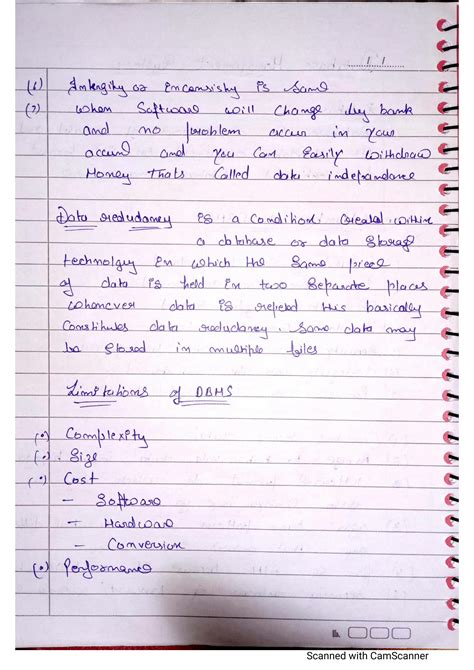 (6) Intengity or inconsisty is same
(7) when Software will change by bank
and no problem accur in your
accunt and you can easily withdraw
Money thats called data indepandance
Data redudancy is a condition created within
a database or data storage
technolgey in which the same piece
of data is held in two separate places
whenever data is repeted this basically
constitutes data redudancy. Same data may
be stored in multiple files
Limitations of DBMS
(•) Complexity
(•) Size
(•) Cost
– Software
– Hardware
– Conversion
(•) Performance
Scanned with CamScanner